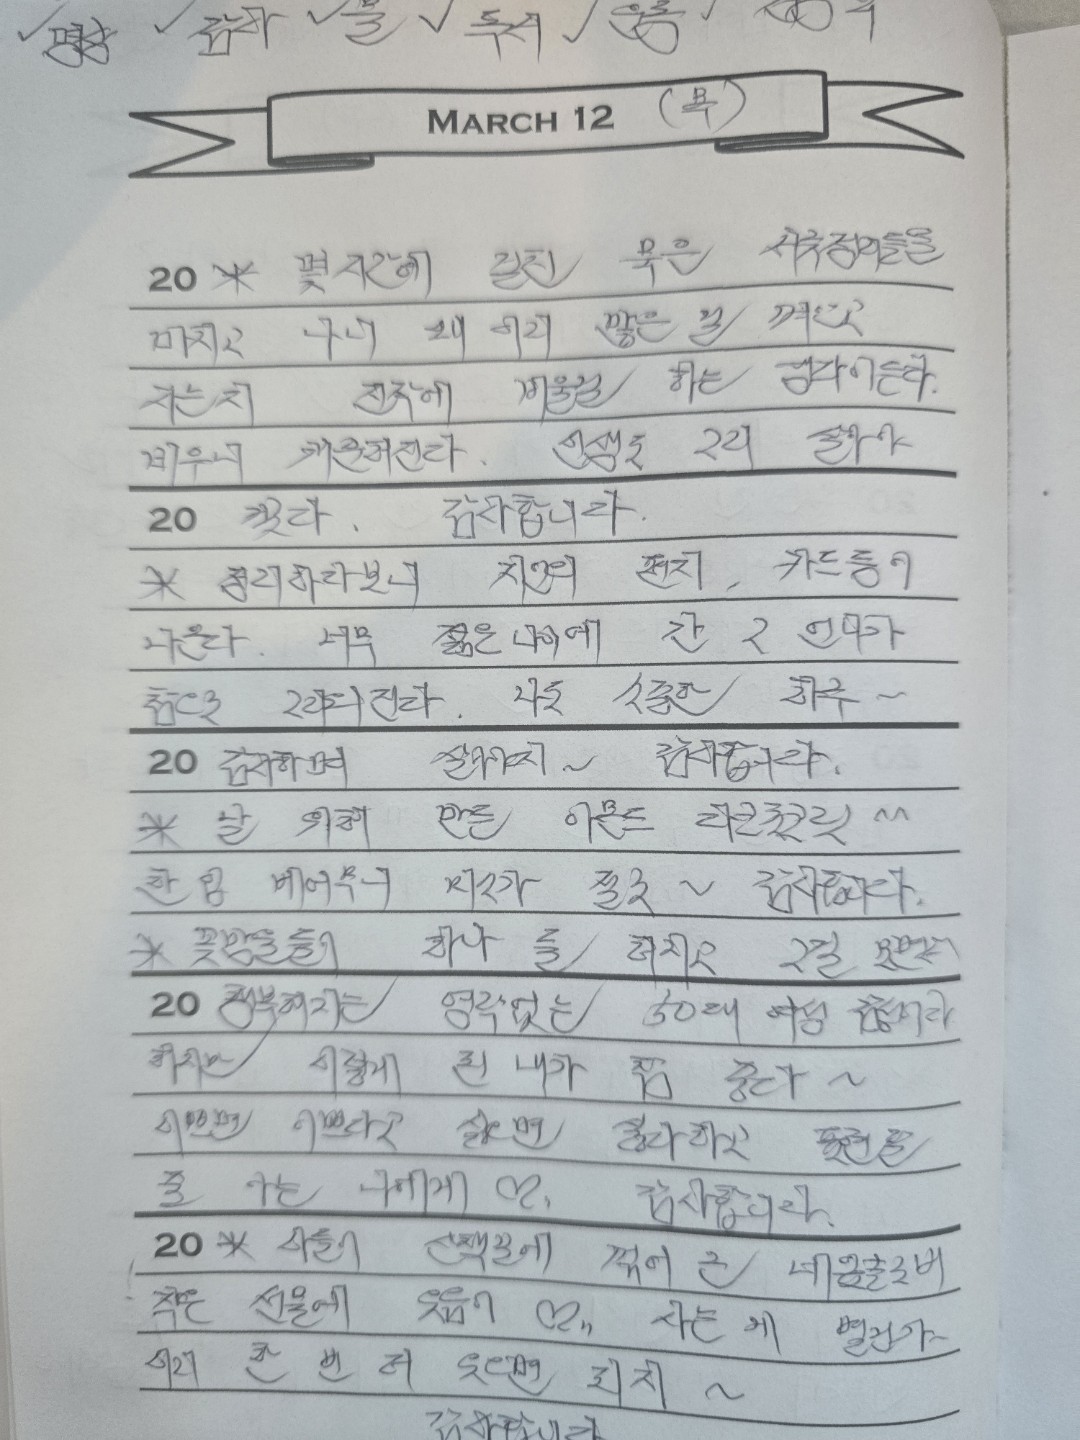 ✓명상 ✓감사 ✓물 ✓독서 ✓운동 ✓
MARCH 12 (목)
20 * 몇시간에 걸친 묵은 서류정리들을
마치고 나니 왜 이리 많은 걸 껴안고
사는지 진즉에 비울걸 하는 생각이든다.
비우니 개운해진다. 인생도 그리 살아야
20 겠다. 감사합니다.
* 정리하다보니 지인의 편지, 카드등이
나온다. 너무 젊은나이에 간 그 언니가
참으로 그리워진다. 나도 소중한 하루~
20 감사하며 살아야지~ 감사합니다.
* 날 위해 만든 아몬드 다크초콜릿 ^^
한입 베어무니 미소가 절로~ 감사합니다.
* 꽃망울들이 하나 둘 터지고 그걸 보면서
20 행복해지는 영락없는 50대 여성 감성이라
하지만 이렇게 된 내가 참 좋다~
이쁘면 이쁘다고 싫으면 싫다하고 표현을
할 아는 나에게 ♡. 감사합니다.
20 * 아들이 산책길에 꺾어 준 네잎클로버
작은 선물에 웃음이 ♡,, 사는 게 별건가~
이리 한 번 더 웃으면 되지~
감사합니다